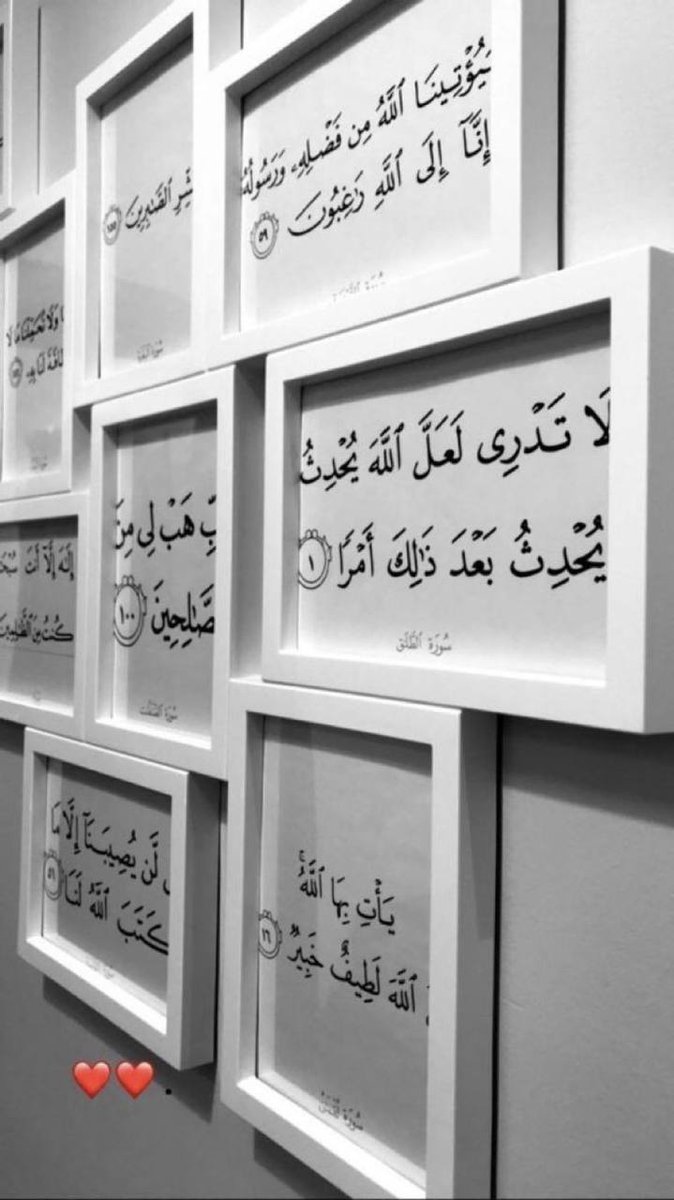 يُؤْتِينَا ٱللَّهُ مِن فَضْلِهِۦ وَرَسُولُهُ
إِنَّآ إِلَى ٱللَّهِ رَٰغِبُونَ ٥٩
شِّرِ ٱلصَّٰبِرِينَ ١٥٥
سُورَة البَقَرَة
وَلَا تُحَمِّلْنَا مَا لَا
طَاقَةَ لَنَا بِهِ
لَا تَدْرِى لَعَلَّ ٱللَّهَ يُحْدِثُ
يُحْدِثُ بَعْدَ ذَٰلِكَ أَمْرًا ١
سُورَة ٱلطَّلَٰق
بِّ هَبْ لِى مِنَ
صَّٰلِحِينَ ١٠٠
سُورَة ٱلصَّٰفَّٰت
إِلَٰهَ إِلَّآ أَنتَ سُبْحَ
كُنتُ مِنَ ٱلظَّٰلِمِينَ
لَّن يُصِيبَنَآ إِلَّا مَا
كَتَبَ ٱللَّهُ لَنَا ٥١
يَأْتِ بِهَا ٱللَّهُۚ
ٱللَّهَ لَطِيفٌ خَبِيرٌ ١٦
سُورَة لُقْمَان